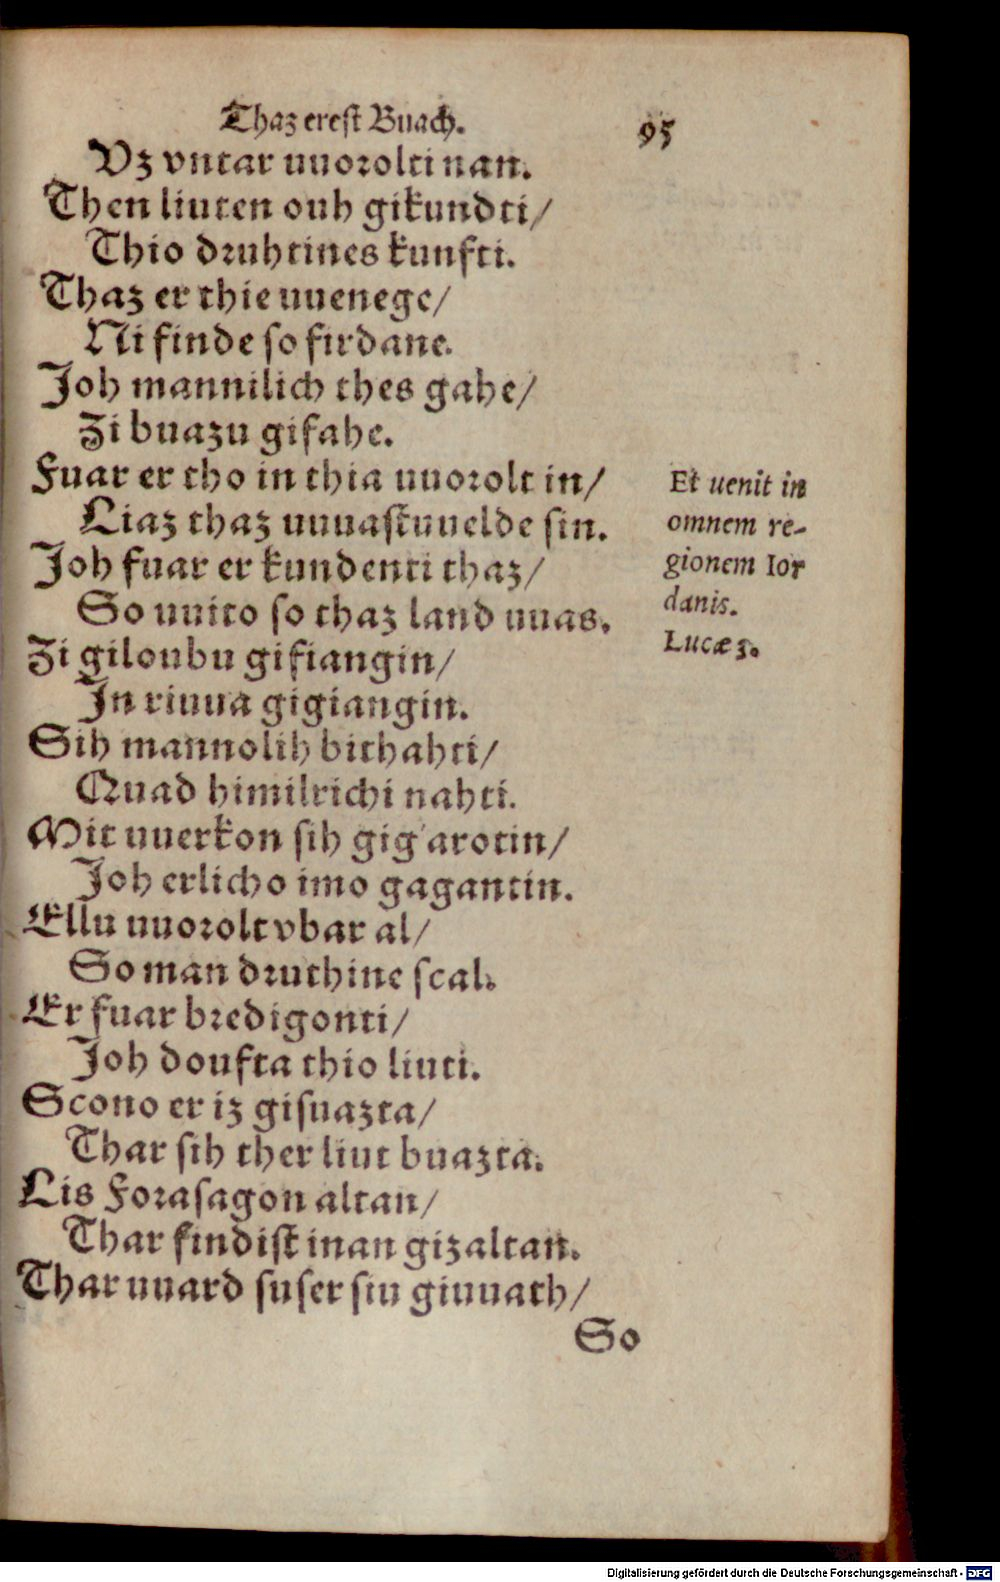 Thaz erest Buach. 95
Vz vntar uuorolti nan.
Then liuten ouh gikundti/
Thio druhtines kunfti.
Thaz er thie uuenege/
Ni finde so firdane.
Joh mannilich thes gahe/
Zi buazu gifahe.
Fuar er tho in thia uuorolt in/
Liaz thaz uuuastuuelde sin.
Joh fuar er kundenti thaz/
So uuito so thaz land uuas.
Zi giloubu gifiangin/
In riuua gigiangin.
Sih mannolih bithahti/
Quad himilrichi nahti.
Mit uuerkon sih gig'arotin/
Joh erlicho imo gagantin.
Ellu uuorolt vbar al/
So man druthine scal.
Er fuar bredigonti/
Joh doufta thio liuti.
Scono er iz gisuazta/
Thar sih ther liut buazta.
Lis Forasagon altan/
Thar findist inan gizaltan.
Thar uuard suser siu giuuath/
So
Et uenit in
omnem re-
gionem Ior
danis.
Lucæ 3.
Digitalisierung gefördert durch die Deutsche Forschungsgemeinschaft - DFG